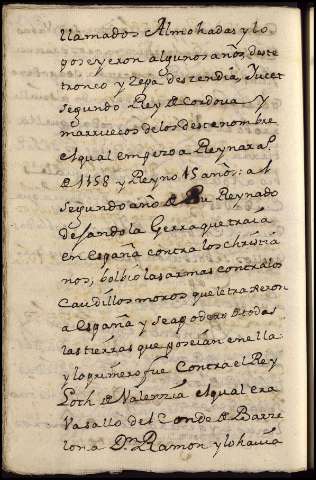 llamados Almohadas y lo
poseyeron algunos años, deste
tronco y zepa deszendia, Juçet
segundo Rey de Cordova y
marruecos de los deste nombre
el qual empezo a Reynar aº
de 1158 y Reyno 15 años: a el
segundo año de su Reynado
dejando la Gerra que traia
en España contra los christia
nos, bolbio las armas contra los
Caudillos moros que le traxeron
a España y se apodero de todas
las tierras que poseian en ella
y lo primero fue Contra el Rey
Loth de Valenzia el qual era
Vasallo del Conde de Barze
lona Dn Ramon y lo havia